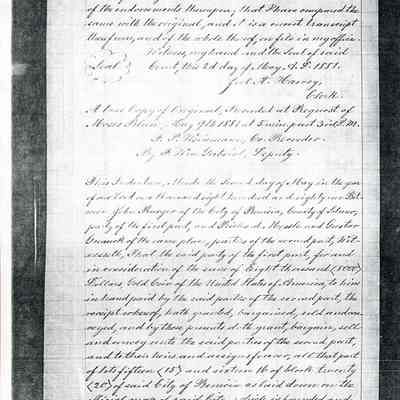 of the endorsements thereupon; that I have compared the
same with the original, and it is a correct transcript
therefrom, and of the whole thereof, on file in my office
Witness, my hand and the Seal of said
Seal Court, this 2d day of May A.D. 1881.
A. Harvey,
Clerk.
A true Copy of Original, Recorded at Request of
Moses May 9th 1881 at 5 min. past 3 o'cl. P.M.
Co. Recorder.
By Deputy.
This Indenture, Made the Second day of May in the year
of our Lord one thousand eight hundred and eighty one Bet-
ween John of the City of Benicia, County of Solano,
party of the first part, and and Gustav
of the same place, parties of the second part, Wit-
nesseth, That the said party of the first part, for and
in consideration of the sum of Eight thousand
Dollars, Gold Coin of the United States of America, to him
in hand paid by the said parties of the second part, the
receipt whereof, hath granted, bargained, sold and con-
veyed, and by these presents doth grant, bargain, sell
and convey unto the said parties of the second part,
and to their heirs and assigns forever, all that part
of lots fifteen (15) and sixteen 16 of block twenty
(20) of said City of Benicia as laid down on the
Official map of said City, which is bounded and